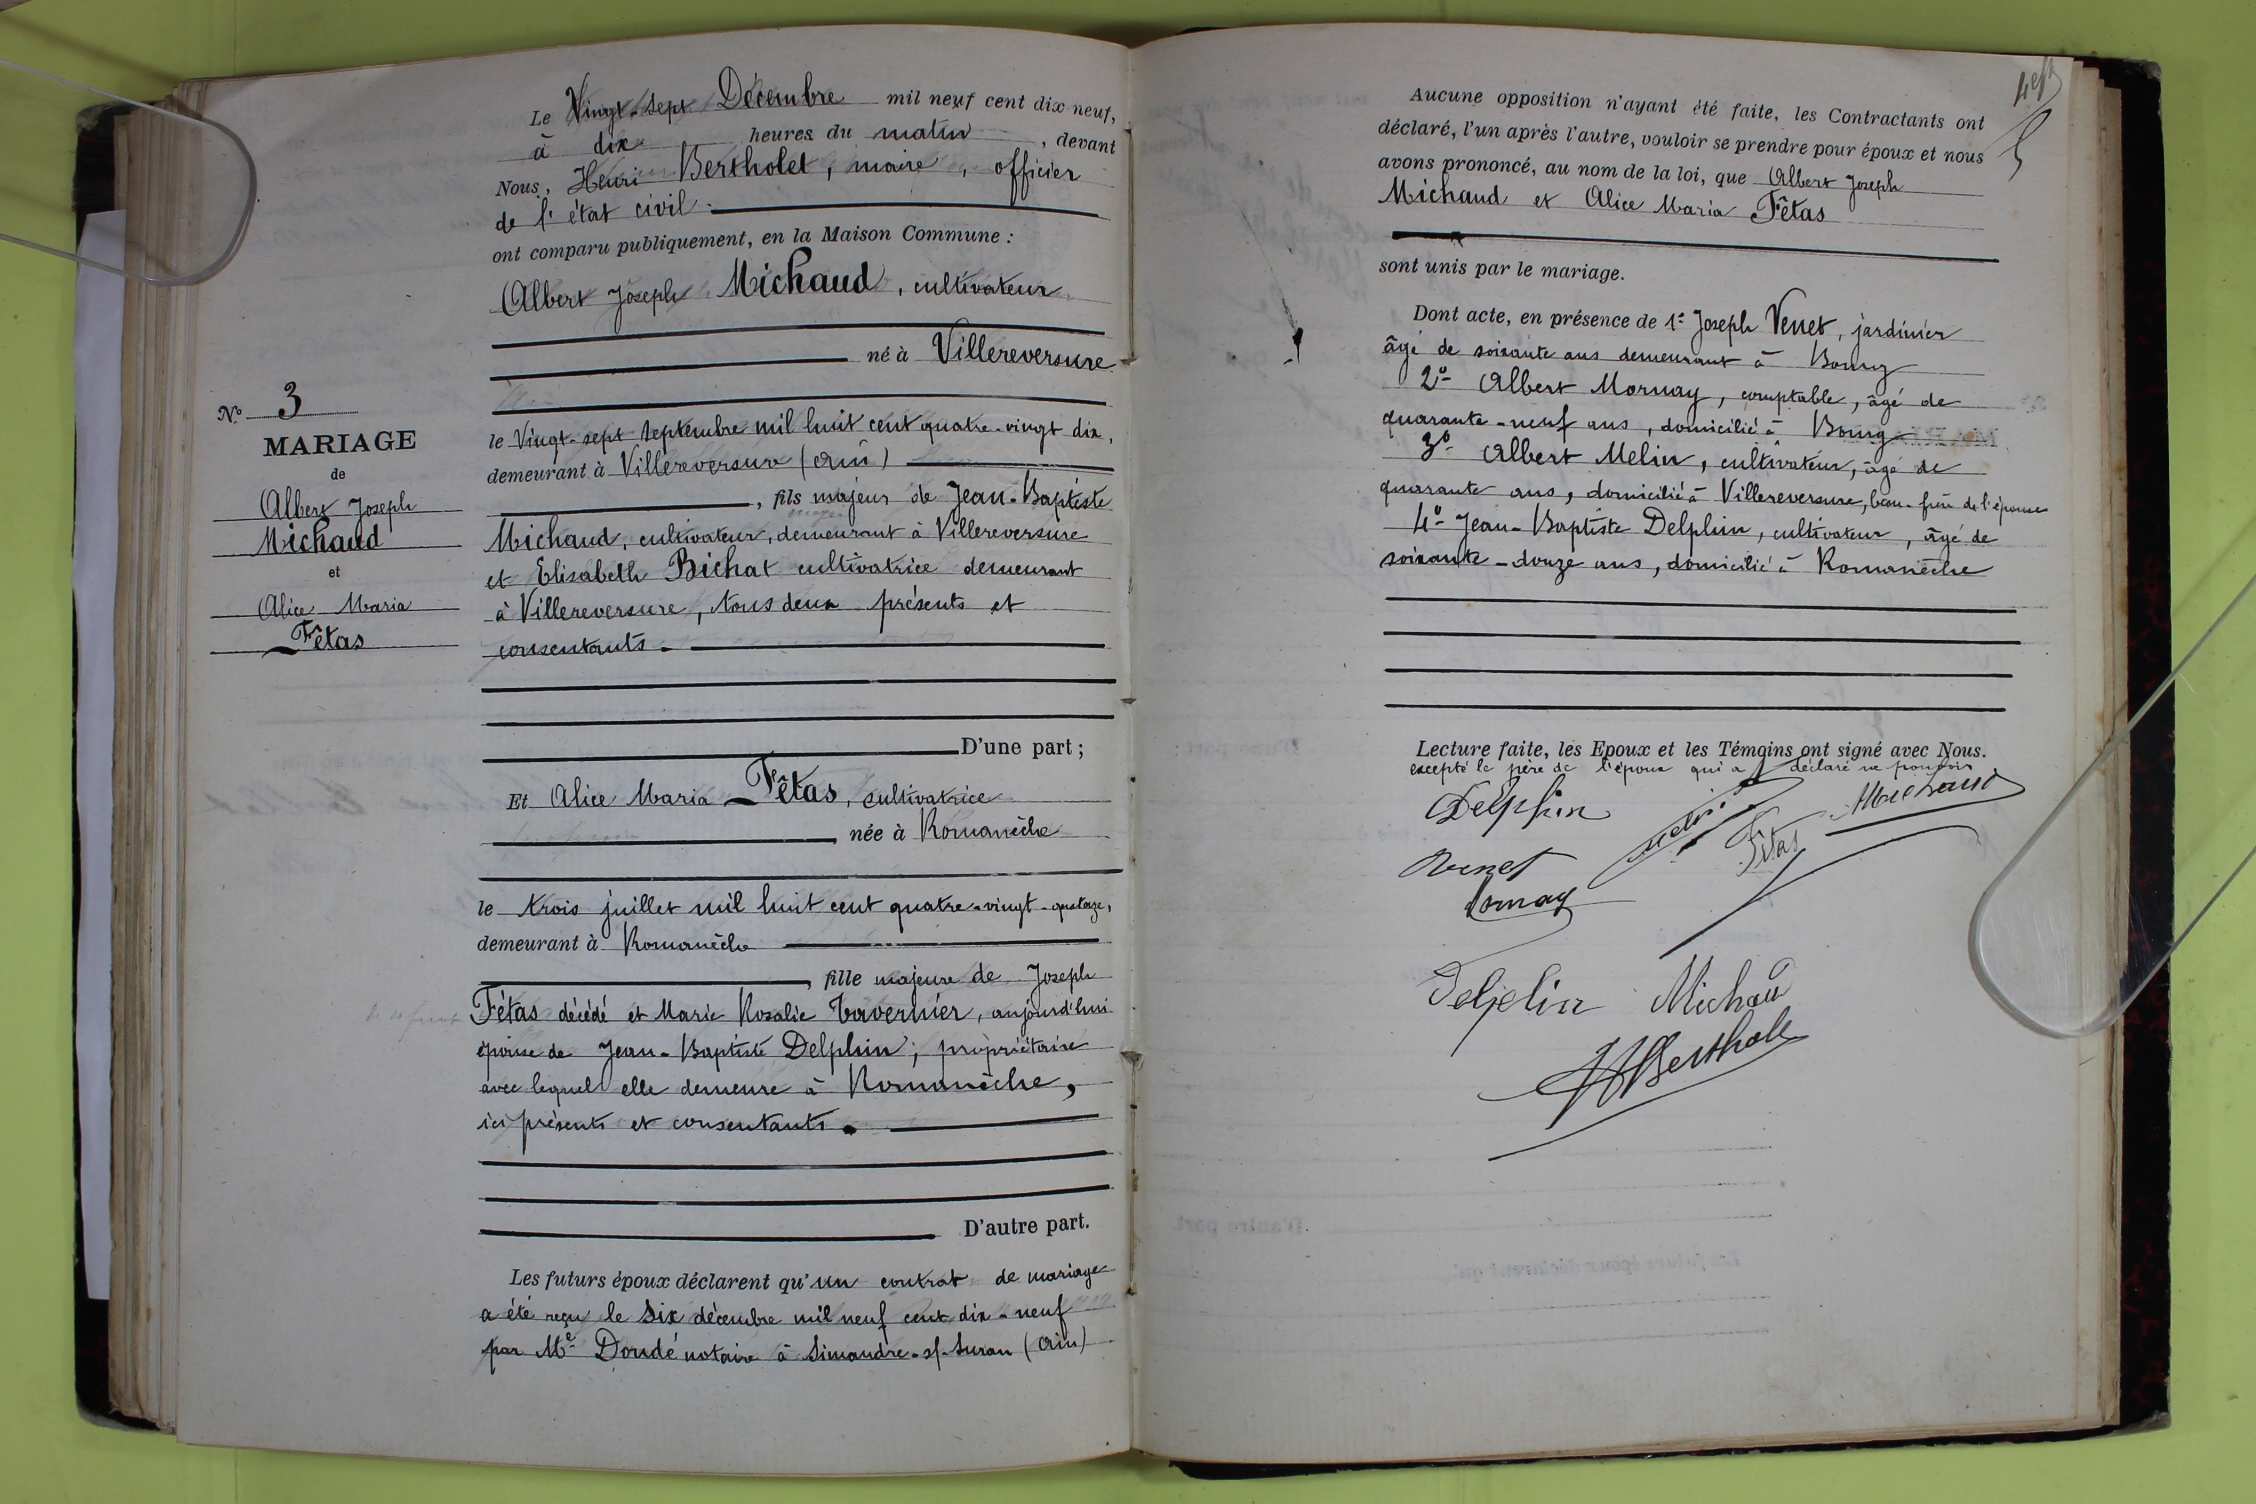 Le Vingt-sept Décembre mil neuf cent dix-neuf,
à dix heures du matin, devant
Nous, Henri Bertholet, maire, officier
de l'état civil.
ont comparu publiquement, en la Maison Commune :
Albert Joseph Michaud, cultivateur
né à Villereversure
le Vingt-sept septembre mil huit cent quatre-vingt dix,
demeurant à Villereversure (Ain)
, fils majeur de Jean-Baptiste
Michaud, cultivateur, demeurant à Villereversure
et Elisabeth Bichat cultivatrice demeurant
à Villereversure, tous deux présents et
consentants.
D'une part ;
Et Alice Maria Fêtas, cultivatrice
née à Romanèche
le trois juillet mil huit cent quatre-vingt-quatorze,
demeurant à Romanèche
, fille majeure de Joseph
Fétas décédé et Marie Rosalie Tavernier, aujourd'hui
épouse de Jean-Baptiste Delphin, propriétaire
avec lequel elle demeure à Romanèche,
ici présents et consentants.
D'autre part.
Les futurs époux déclarent qu'un contrat de mariage
a été reçu le six décembre mil neuf cent dix-neuf
par Me Dondé notaire à Simandre-s/-Suran (Ain)
N° 3
MARIAGE
de
Albert Joseph
Michaud
et
Alice Maria
Fêtas
Aucune opposition n'ayant été faite, les Contractants ont
déclaré, l'un après l'autre, vouloir se prendre pour époux et nous
avons prononcé, au nom de la loi, que Albert Joseph
Michaud et Alice Maria Fêtas
sont unis par le mariage.
Dont acte, en présence de 1° Joseph Venet, jardinier
âgé de soixante ans demeurant à Bourg
2° Albert Mornay, comptable, âgé de
quarante-neuf ans, domicilié à Bourg
3° Albert Melin, cultivateur, âgé de
quarante ans, domicilié à Villereversure, beau-frère de l'épouse
4° Jean-Baptiste Delphin, cultivateur, âgé de
soixante-douze ans, domicilié à Romanèche
Lecture faite, les Epoux et les Témoins ont signé avec Nous.
excepté le père de l'époux qui a déclaré ne pouvoir.
Delphin
Melin
Fétas
Michaud
Venet
Mornay
Delphin
Michau
HBerthole